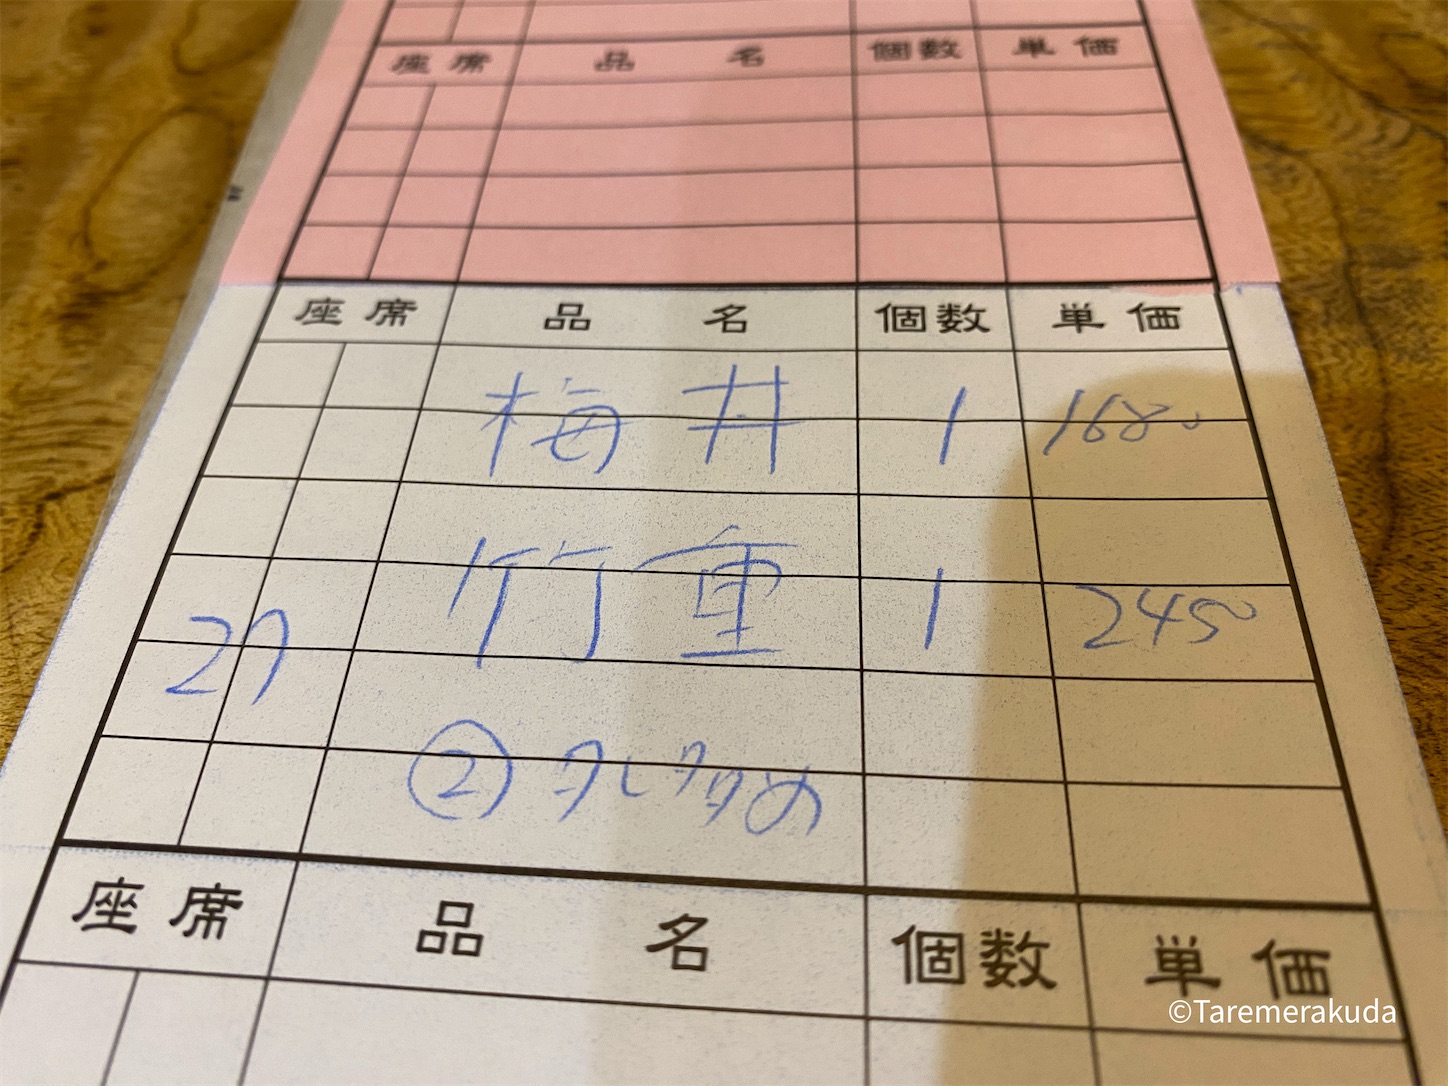 座席 品名 個数 単価
座席 品名 個数 単価
梅丼 1 1680
竹重 1 2450
27
② タレ多め
座席 品名 個数 単価
©Taremerakuda